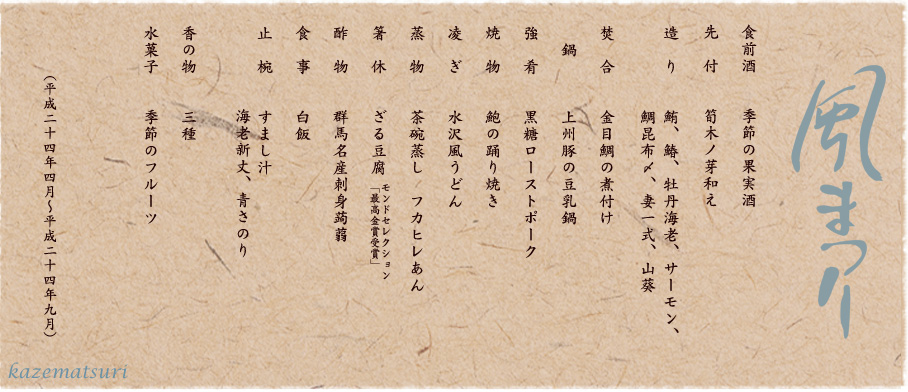 風まつり
食前酒　季節の果実酒
先付　筍木ノ芽和え
造り　鮪、鰆、牡丹海老、サーモン、
鯛昆布〆、妻一式、山葵
焚合　金目鯛の煮付け
鍋　上州豚の豆乳鍋
強肴　黒糖ローストポーク
焼物　鮑の踊り焼き
凌ぎ　水沢風うどん
蒸物　茶碗蒸し　フカヒレあん
箸休　ざる豆腐　モンドセレクション
「最高金賞受賞」
酢物　群馬名産刺身蒟蒻
食事　白飯
止椀　すまし汁
海老新丈、青さのり
香の物　三種
水菓子　季節のフルーツ
（平成二十四年四月～平成二十四年九月）
kazematsuri